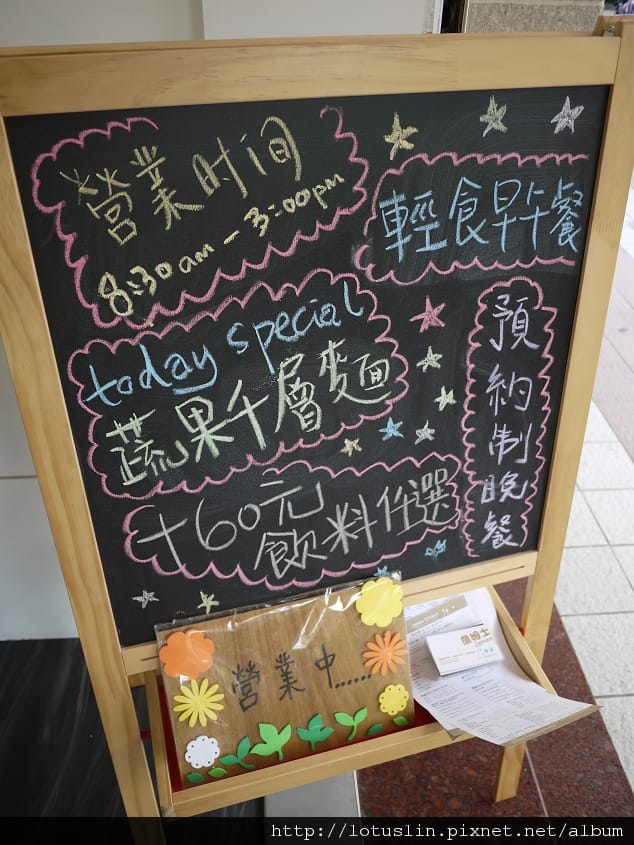 營業时间
8:30am - 3:00pm
輕食早午餐
today special
蔬果千層麵
預約制晚餐
+60元
飲料任選
營業中......
詹姆士
James
http://lotuslin.pixnet.net/album